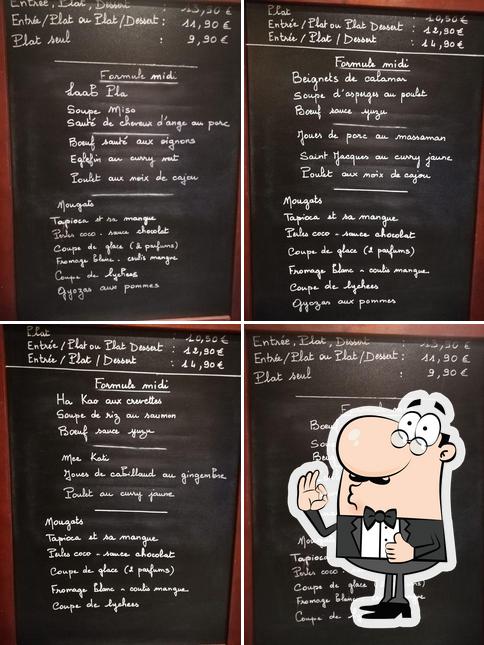 Entrée, Plat, Dessert : 13,90 €
Entrée/Plat ou Plat/Dessert : 11,90 €
Plat seul : 9,90 €
Formule midi
Laab Pla
Soupe Miso
Sauté de cheveux d'ange au porc
Bœuf sauté aux oignons
Eglefin au curry vert
Poulet aux noix de cajou
Nougats
Tapioca et sa mangue
Perles coco - sauce chocolat
Coupe de glace (2 parfums)
Fromage blanc - coulis mangue
Coupe de lychees
Gyozas aux pommes
Plat : 10,50 €
Entrée/Plat ou Plat Dessert : 12,90 €
Entrée / Plat / Dessert : 14,90 €
Formule midi
Beignets de calamar
Soupe d'asperges au poulet
Bœuf sauce yuzu
Joues de porc au massaman
Saint Jacques au curry jaune
Poulet aux noix de cajou
Nougats
Tapioca et sa mangue
Perles coco - sauce chocolat
Coupe de glace (2 parfums)
Fromage blanc - coulis mangue
Coupe de lychees
Gyozas aux pommes
Plat : 10,50 €
Entrée/Plat ou Plat Dessert : 12,90 €
Entrée / Plat / Dessert : 14,90 €
Formule midi
Ha Kao aux crevettes
Soupe de riz au saumon
Bœuf sauce yuzu
Mee Kati
Joues de cabillaud au gingembre
Poulet au curry jaune
Nougats
Tapioca et sa mangue
Perles coco - sauce chocolat
Coupe de glace (2 parfums)
Fromage blanc - coulis mangue
Coupe de lychees
Entrée, Plat, Dessert : 13,90 €
Entrée/Plat ou Plat/Dessert : 11,90 €
Plat seul : 9,90 €
Tapioca
Perles coco
Coupe de glace
Fromage
Coupe de